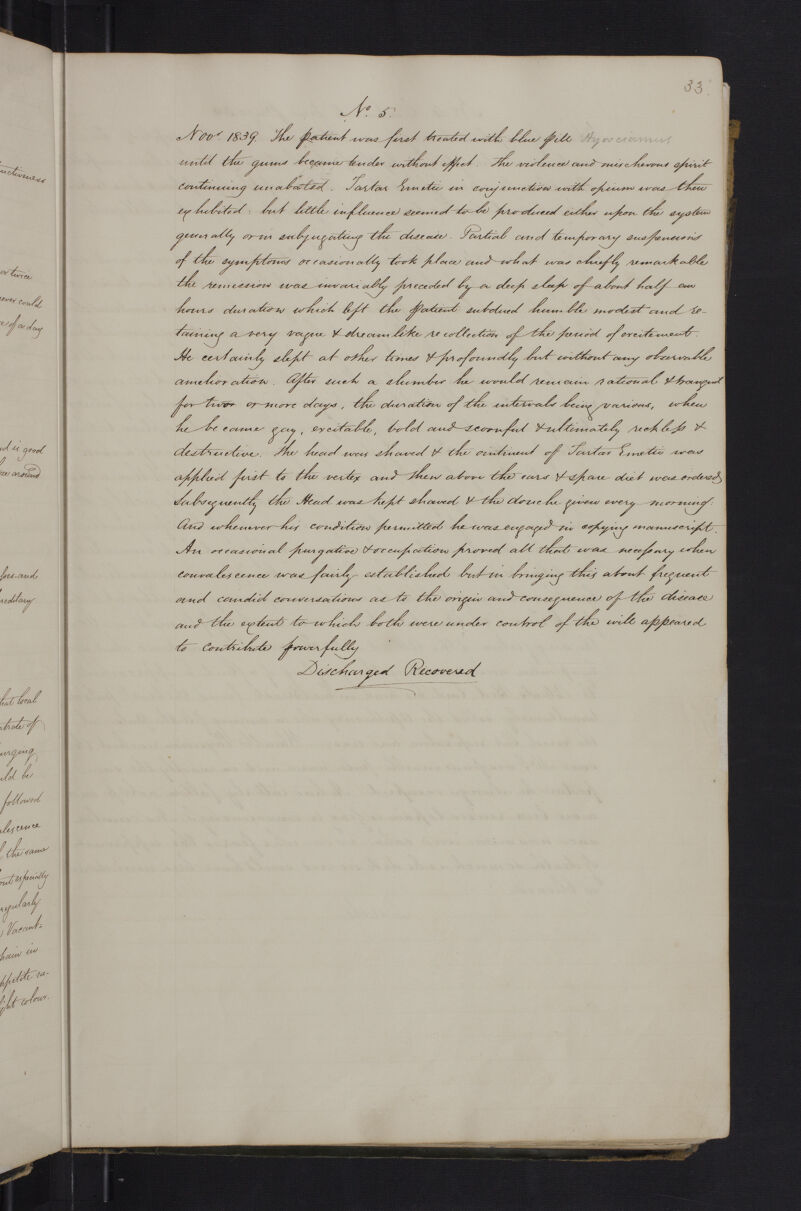 33.
No. 5.
Novr 1839. The patient was first treated with blue pill Hyosciamus
until the gums became tender without effect. The violence and mischevous spirit
continuing unabated. Tartar Emetic in conjunction with opium was then
exhibited: but little influence seemed to be produced either upon the system
generally or in subjugating the disease. Partial and temporary suspensions
of the symptoms occasionally took place and what was chiefly remarkable
the remission was invariably preceded by a deep sleep of about half an
hours duration which left the patient subdued humble modest and re-
taining a very vague & dreamlike recollection of the period of excitement.
He certainly slept at other times & profoundly but without any observable
amelioration. After such a slumber he would remain rational & tranquil
for two or more days, the duration of the intervals being various, when
he became gay, excitable, bold and scornful & ultimately reckless &
destructive. The head was shaved & the ointment of Tartar Emetic was
applied first to the vertex and then above the ears & spare diet was ordered
Subsequently the Head was kept shaved & the douche given every morning.
And whenever his condition permitted he was engaged in copying manuscript.
An occasional purgative & occupation proved all that was necessary when
convalescence was fairly established but in bringing this about frequent
and candid conversations as to the origin and consequence of the disease
and the extent to which both were under control of the will appeared
to contribute powerfully
Discharged Recovered
or twice
of a day
is good
around
and
that local
urging
ld be
followed
lescence
the same
especially
egularly
Vacant-
pain in
appetite va-
colour.